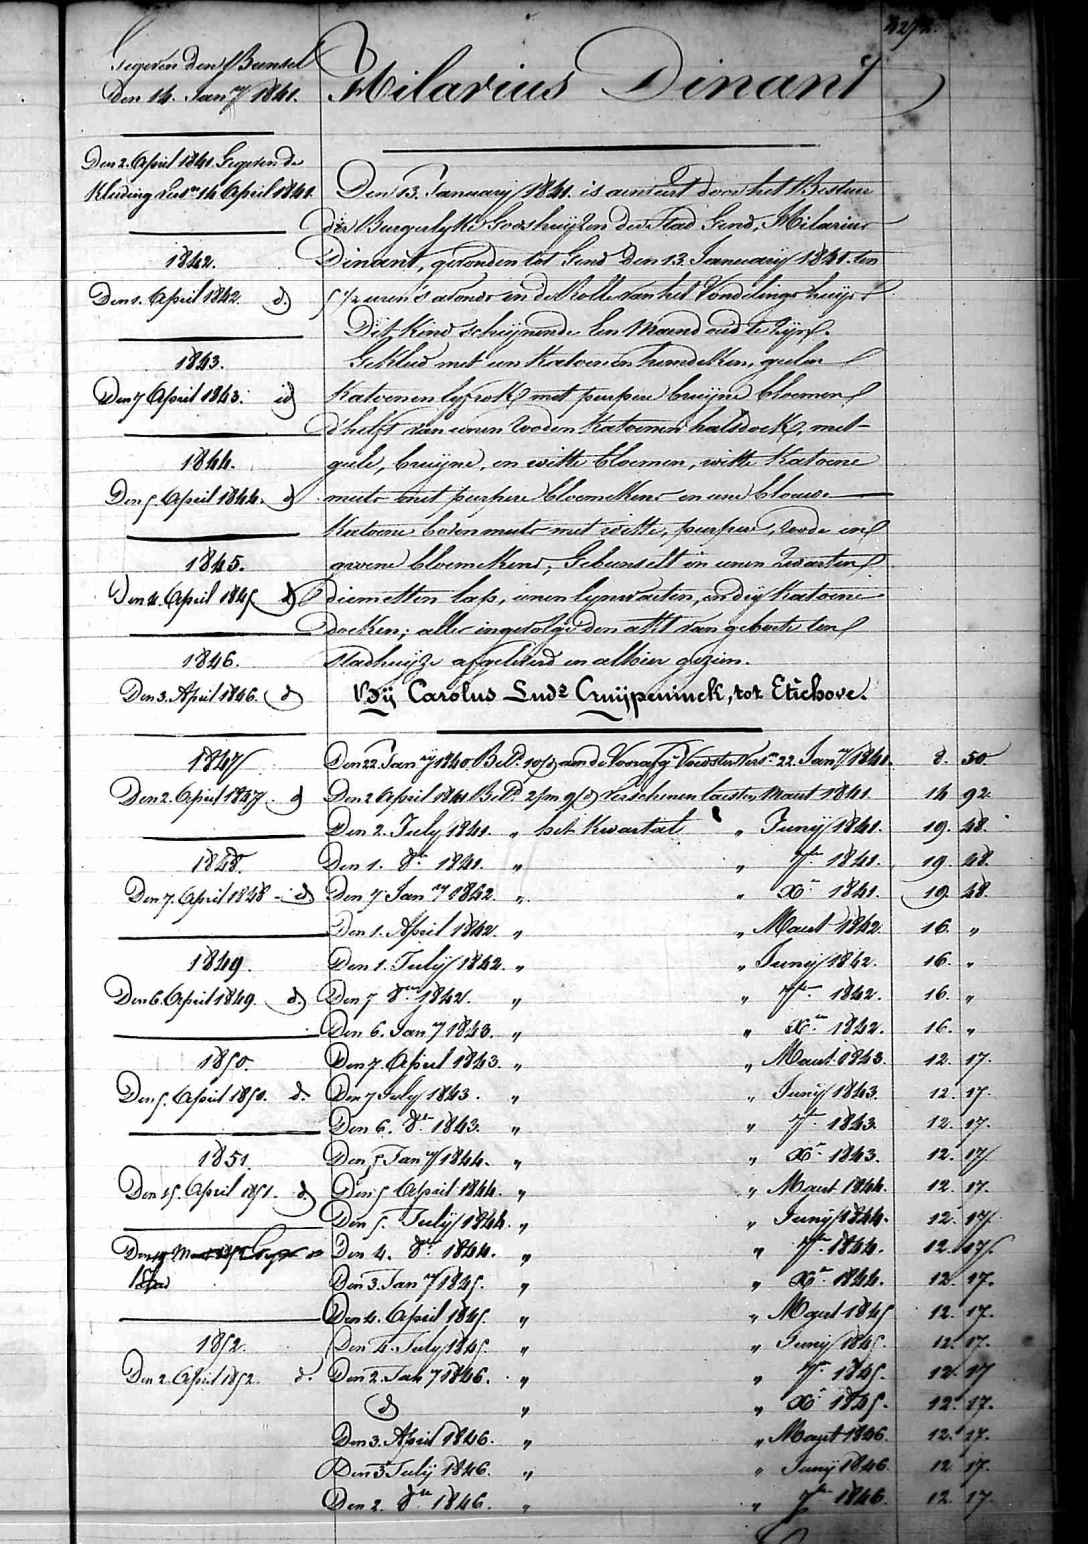 Gegeven den Bunsel
Den 14. Jany 1841.
Hilarius Dinant
Den 2. April 1841 Gegeven de
Kleeding 14 April 1841.
Den 13. January 1841. is aenveirt door het Bestuur
der Burgerlyke Godshuijzen der Stad Gend, Hilarius
Dinant, gevonden tot Gend den 13. January 1841. ten
5 1/2 uren 's avonds in de Rolle van het Vondelings huijs.
Dit Kind schijnende Een Maend oud te zijn.
Gekleed met een Katoenen hemdeken, geelen
Katoenen lyfrok met purpere bruijne bloemen
d'helft van eenen Rooden Katoenen halsdoek, met
geele, bruijne, en witte bloemen, witte Katoene
muts met purpere bloemekens en eene blouwe
Katoene bovenmuts met witte, purpere, roode en
groene bloemekens, Gebunselt in eenen Zwarten
diemetten lap, eenen lynwaeten, en dry Katoene
doeken; alles ingevolge den akt van geboorte ten
Stadhuijze afgeleverd en alhier gezien.
Bÿ Carolus Ludz. Cruÿpeninck, tot Etichove.
1842.
Den 1. April 1842. d
1843.
Den 7 April 1843. id
1844.
Den 5 April 1844. d
1845.
Den 4. April 1845 d
1846.
Den 3. April 1846. d
1847
Den 2. April 1847. d
1848.
Den 7. April 1848 - d
1849.
Den 6. April 1849. d.
1850.
Den 5. April 1850. d.
1851.
Den 15. April 1851. d
1852.
Den 2. April 1852. d.
Den 22 Jany 1840 Betd. 10/ aen de Voorafg. Voedster Versn. 22. Jany 1841. 8. 50.
Den 2 April 1841 Betd. 2/m 9/d Verschenen laesten Maert 1841. 14 92.
Den 2. July 1841. „ het Kwartal „ Junij 1841. 19. 48.
Den 1. 8er 1841. „ „ 7er 1841. 19. 48.
Den 7 Jany 1842. „ „ Xr 1841. 19. 48.
Den 1. April 1842. „ „ Maert 1842. 16. „
Den 1. Julij 1842. „ „ Junij 1842. 16. „
Den 7 8er 1842. „ „ 7er 1842. 16. „
Den 6. Jany 1843. „ „ Xr 1842. 16. „
Den 7. April 1843. „ „ Maert 1843. 12. 17.
Den 7 July 1843. „ „ Junij 1843. 12. 17.
Den 6. 8er 1843. „ „ 7er 1843. 12. 17.
Den 5 Jany 1844. „ „ Xr 1843. 12. 17
Den 5 April 1844. „ „ Maert 1844. 12. 17.
Den 5. Julij 1844. „ „ Junij 1844. 12. 17.
Den 4. 8er 1844. „ „ 7er 1844. 12. 17.
Den 3. Jany 1845. „ „ Xr 1844. 12. 17.
Den 4. April 1845. „ „ Maert 1845 12. 17.
Den 4. July 1845. „ „ Junij 1845. 12. 17.
Den 2. Jany 1846. „ „ 7er 1845. 12. 17
d „ „ Xr 1845. 12. 17.
Den 3. April 1846. „ „ Maert 1846. 12. 17.
Den 3 Julij 1846. „ „ Junij 1846. 12 17.
Den 2. 8er 1846. „ „ 7er 1846. 12. 17.